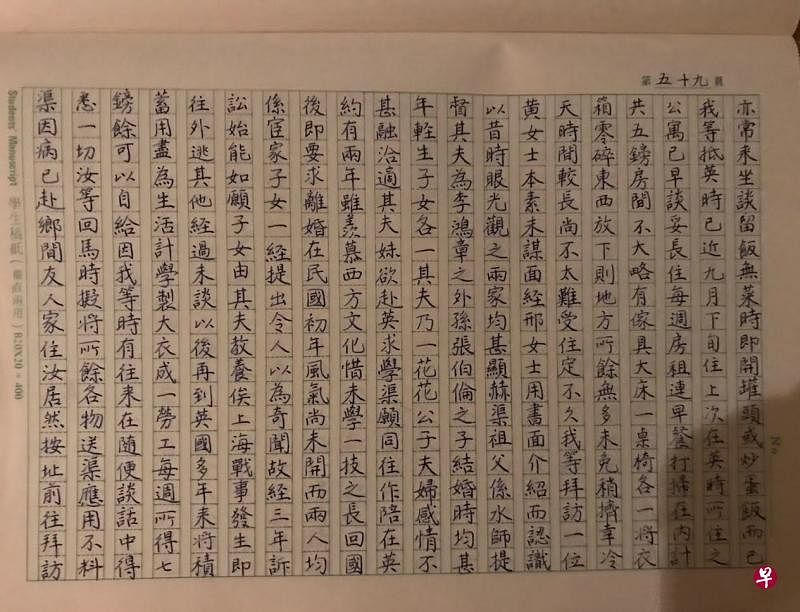 第五十九頁
No
亦常來坐談留飯無菜時即開罐頭或炒蛋飯而已
我等抵英時已近九月下旬住上次在英時所住之
公寓已早談妥長住每週房租連早餐打掃在內計
共五鎊房間不大略有傢具大床一桌椅各一將衣
箱零碎東西放下則地方所餘無多未免稍擠幸冷
天時間較長尚不太難受住定不久我等拜訪一位
黄女士本素未謀面經邢女士用書面介紹而認識
以昔時眼光觀之兩家均甚顯赫渠祖父係水師提
督其夫為李鴻章之外孫張伯倫之子結婚時均甚
年輕生子女各一其夫乃一花花公子夫婦感情不
甚融洽適其夫妹欲赴英求學渠願同往作陪在英
約有兩年雖羨慕西方文化惜未學一技之長回國
後即要求離婚在民國初年風氣尚未開而兩人均
係宦家子女一經提出令人以為奇聞故經三年訴
訟始能如願子女由其夫教養俟上海戰事發生即
往外逃其他經過未談以後再到英國多年來將積
蓄用盡為生活計學製大衣成一勞工每週所得七
鎊餘可以自給因我等時有往來在隨便談話中得
悉一切汝等回馬時擬將所餘各物送渠應用不料
渠因病已赴鄉間友人家住汝居然按址前往拜訪
Students' Manuscript 學生稿紙(橫直兩用) 20 = 400
早